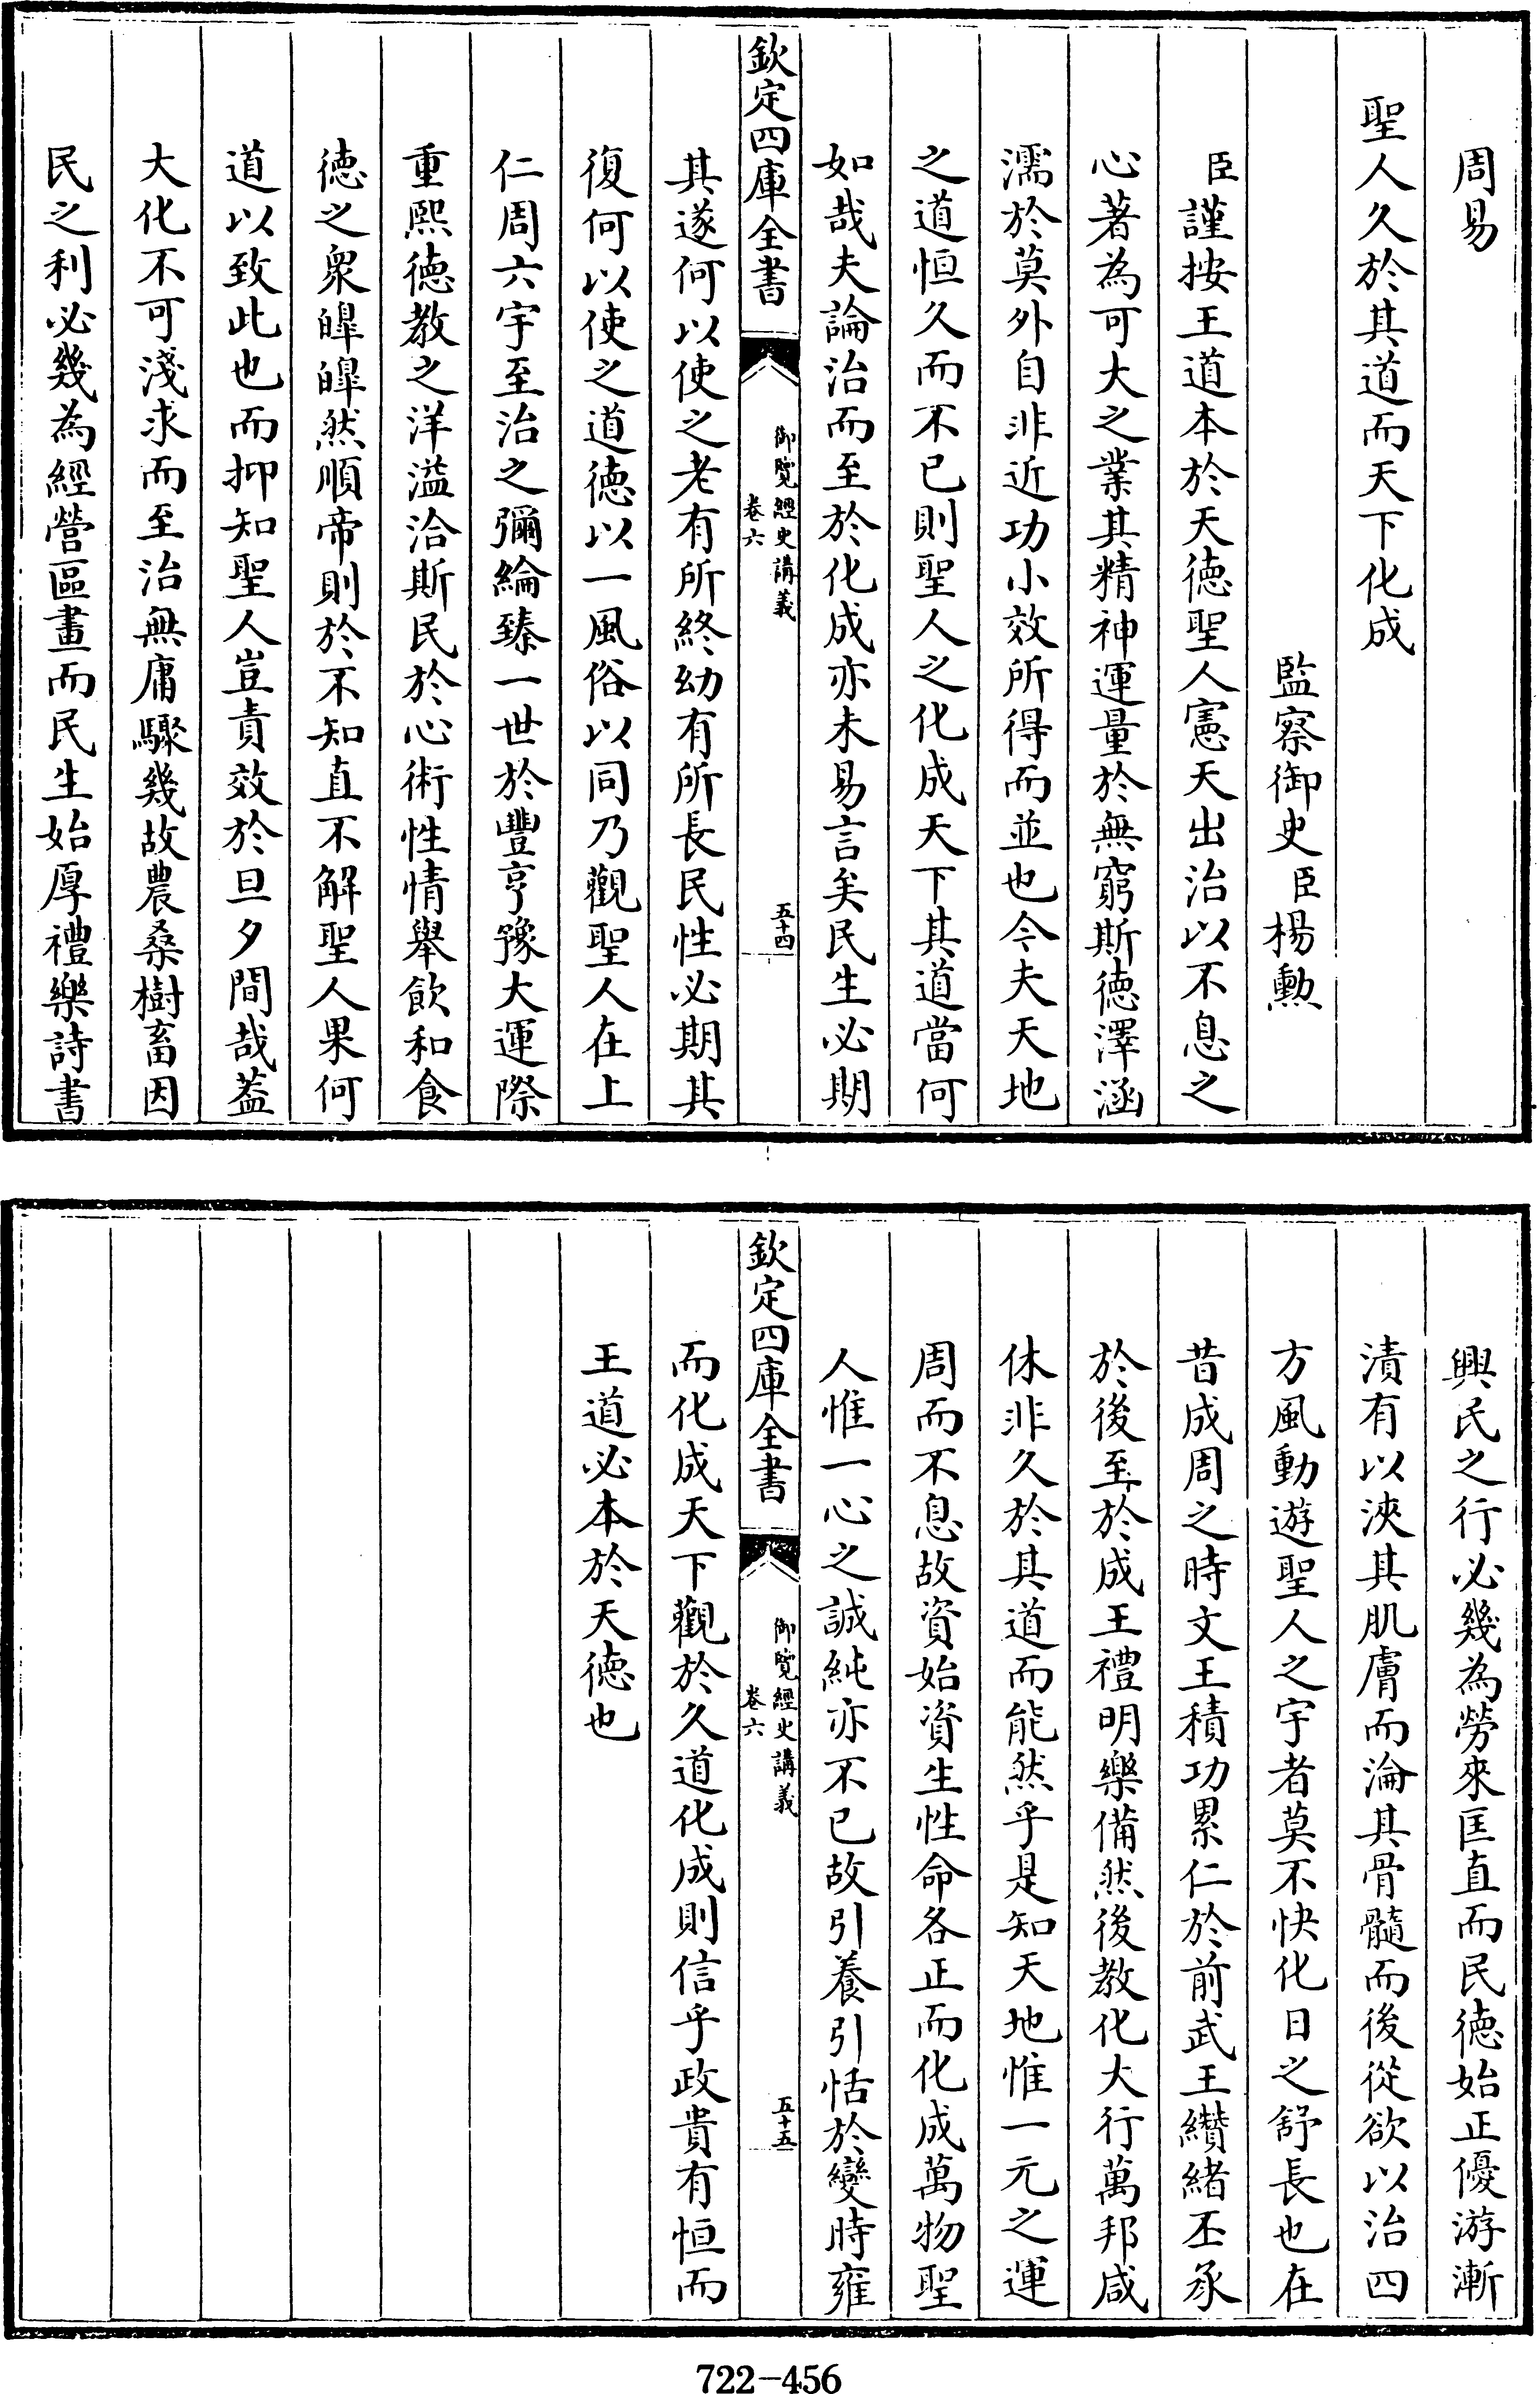 周易
聖人久於其道而天下化成
監察御史臣楊勲
臣謹按王道本於天德聖人憲天出治以不息之
心著為可大之業其精神運量於無窮斯德澤涵
濡於莫外自非近功小效所得而並也今夫天地
之道恒久而不已則聖人之化成天下其道當何
如哉夫論治而至於化成亦未易言矣民生必期
欽定四庫全書
御覽經史講義
卷六
五十四
其遂何以使之老有所終幼有所長民性必期其
復何以使之道德以一風俗以同乃觀聖人在上
仁周六宇至治之彌綸臻一世於豐亨豫大運際
重熙德教之洋溢洽斯民於心術性情舉飲和食
德之衆皥皥然順帝則於不知直不解聖人果何
道以致此也而抑知聖人豈責效於旦夕間哉蓋
大化不可淺求而至治無庸驟幾故農桑樹畜因
民之利必幾為經營區畫而民生始厚禮樂詩書
興民之行必幾為勞來匡直而民德始正優游漸
漬有以浹其肌膚而淪其骨髓而後從欲以治四
方風動遊聖人之宇者莫不快化日之舒長也在
昔成周之時文王積功累仁於前武王纘緒丕承
於後至於成王禮明樂備然後教化大行萬邦咸
休非久於其道而能然乎是知天地惟一元之運
周而不息故資始資生性命各正而化成萬物聖
人惟一心之誠純亦不已故引養引恬於變時雍
欽定四庫全書
御覽經史講義
卷六
五十五
而化成天下觀於久道化成則信乎政貴有恒而
王道必本於天德也
722-456